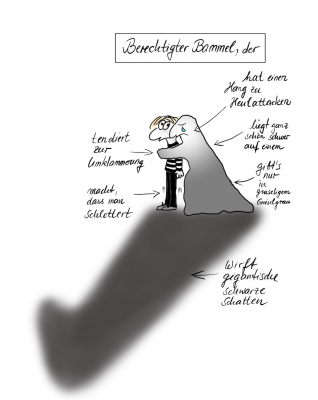 Berechtigter Bammel, der
hat einen
Hang zu
Heulattacken
tendiert
zur
Umklammerung
liegt ganz
schön schwer
auf einem
macht,
dass man
schlottert
gibt's
nur
in
gruseligem
Grieselgrau
Wirft
gigantische
schwarze
Schatten